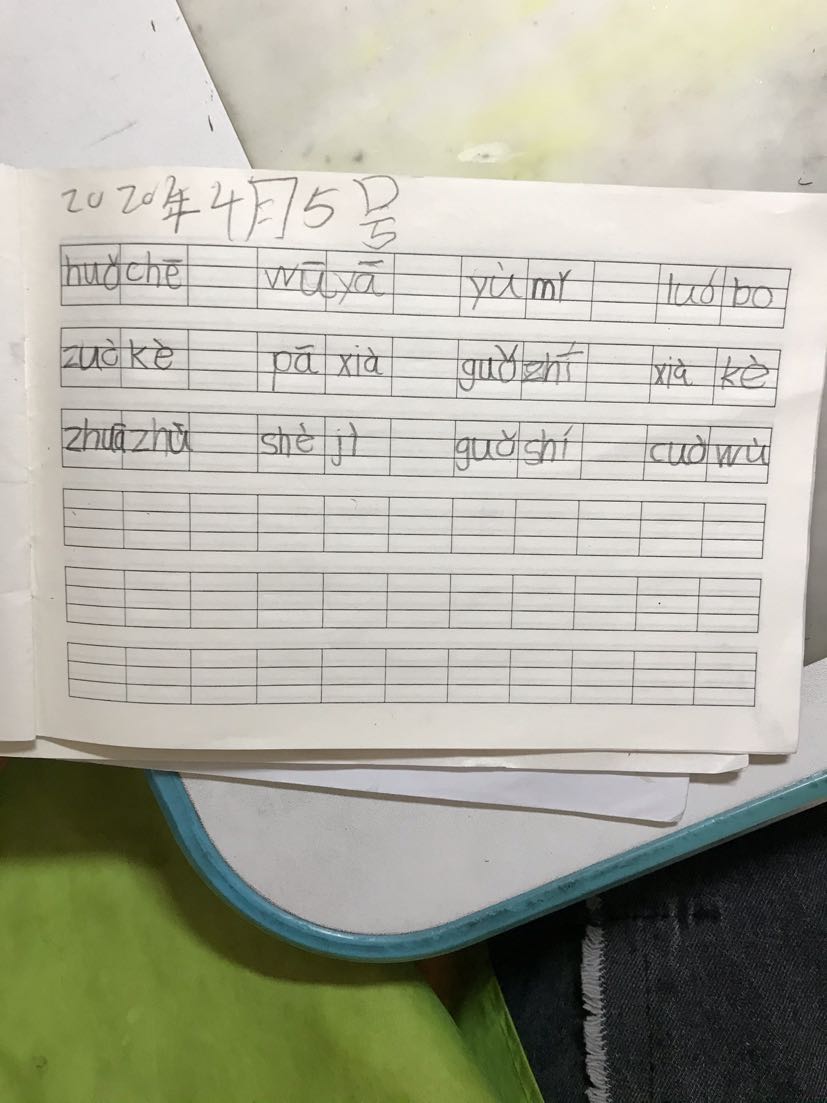 2020年4月5号
huǒ chē wū yā yù mǐ luó bo
zuò kè pā xià guǒ zhí xià kè
zhuā zhù shè jì guǒ shí cuò wù